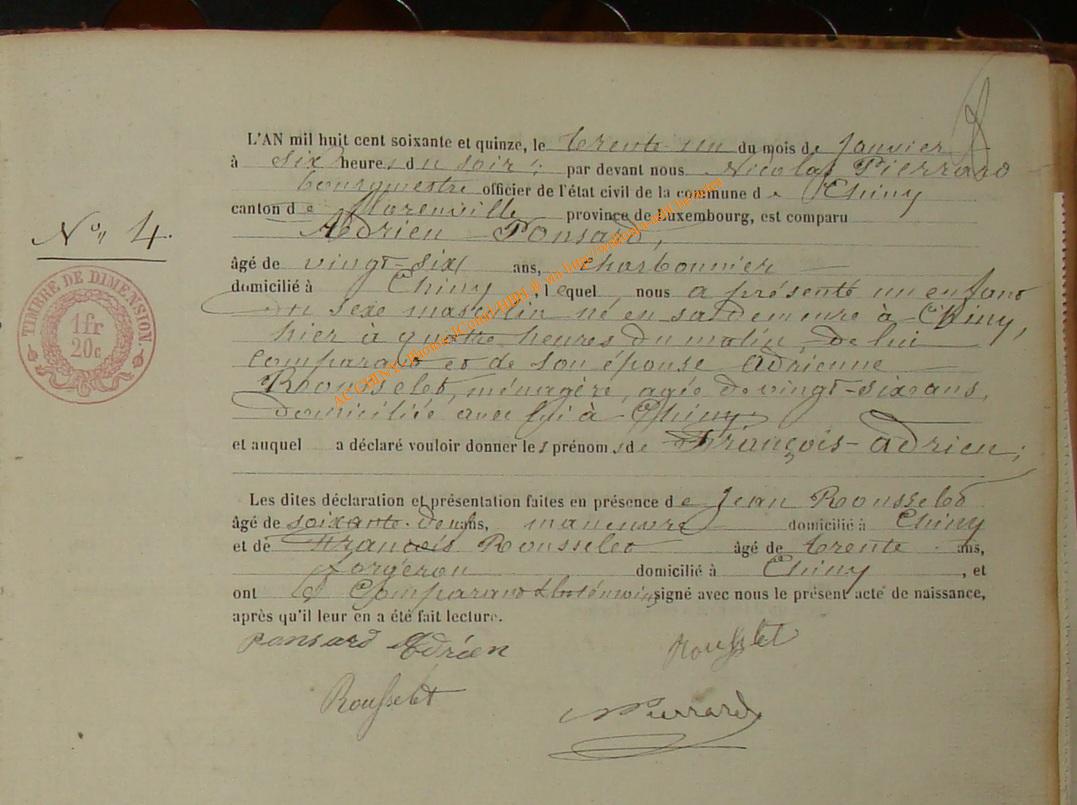 L'AN mil huit cent soixante et quinze, le trente-un du mois de janvier
à six heures du soir; par devant nous Nicolas Pierrard
bourgmestre officier de l'état civil de la commune de Chiny
canton de Florenville province de Luxembourg, est comparu
Adrien Ponsard,
âgé de vingt-six ans, charbonnier
domicilié à Chiny, lequel nous a présenté un enfant
du sexe masculin né en sa demeure à Chiny,
hier à quatre heures du matin, de lui
comparant et de son épouse Adrienne
Rousselet, ménagère, agée de vingt-six ans,
domiciliée avec lui à Chiny;
et auquel a déclaré vouloir donner les prénoms de François-Adrien;
Les dites déclaration et présentation faites en présence de Jean Rousselet
âgé de soixante-deux ans, manœuvre domicilié à Chiny
et de François Rousselet âgé de trente ans,
forgeron domicilié à Chiny, et
ont le Comparant & les témoins signé avec nous le présent acte de naissance,
après qu'il leur en a été fait lecture.
Ponsard Adrien
Rousselet
Rousselet
N Pierrard
No, 4.
TIMBRE DE DIMENSION
1 fr
20 c